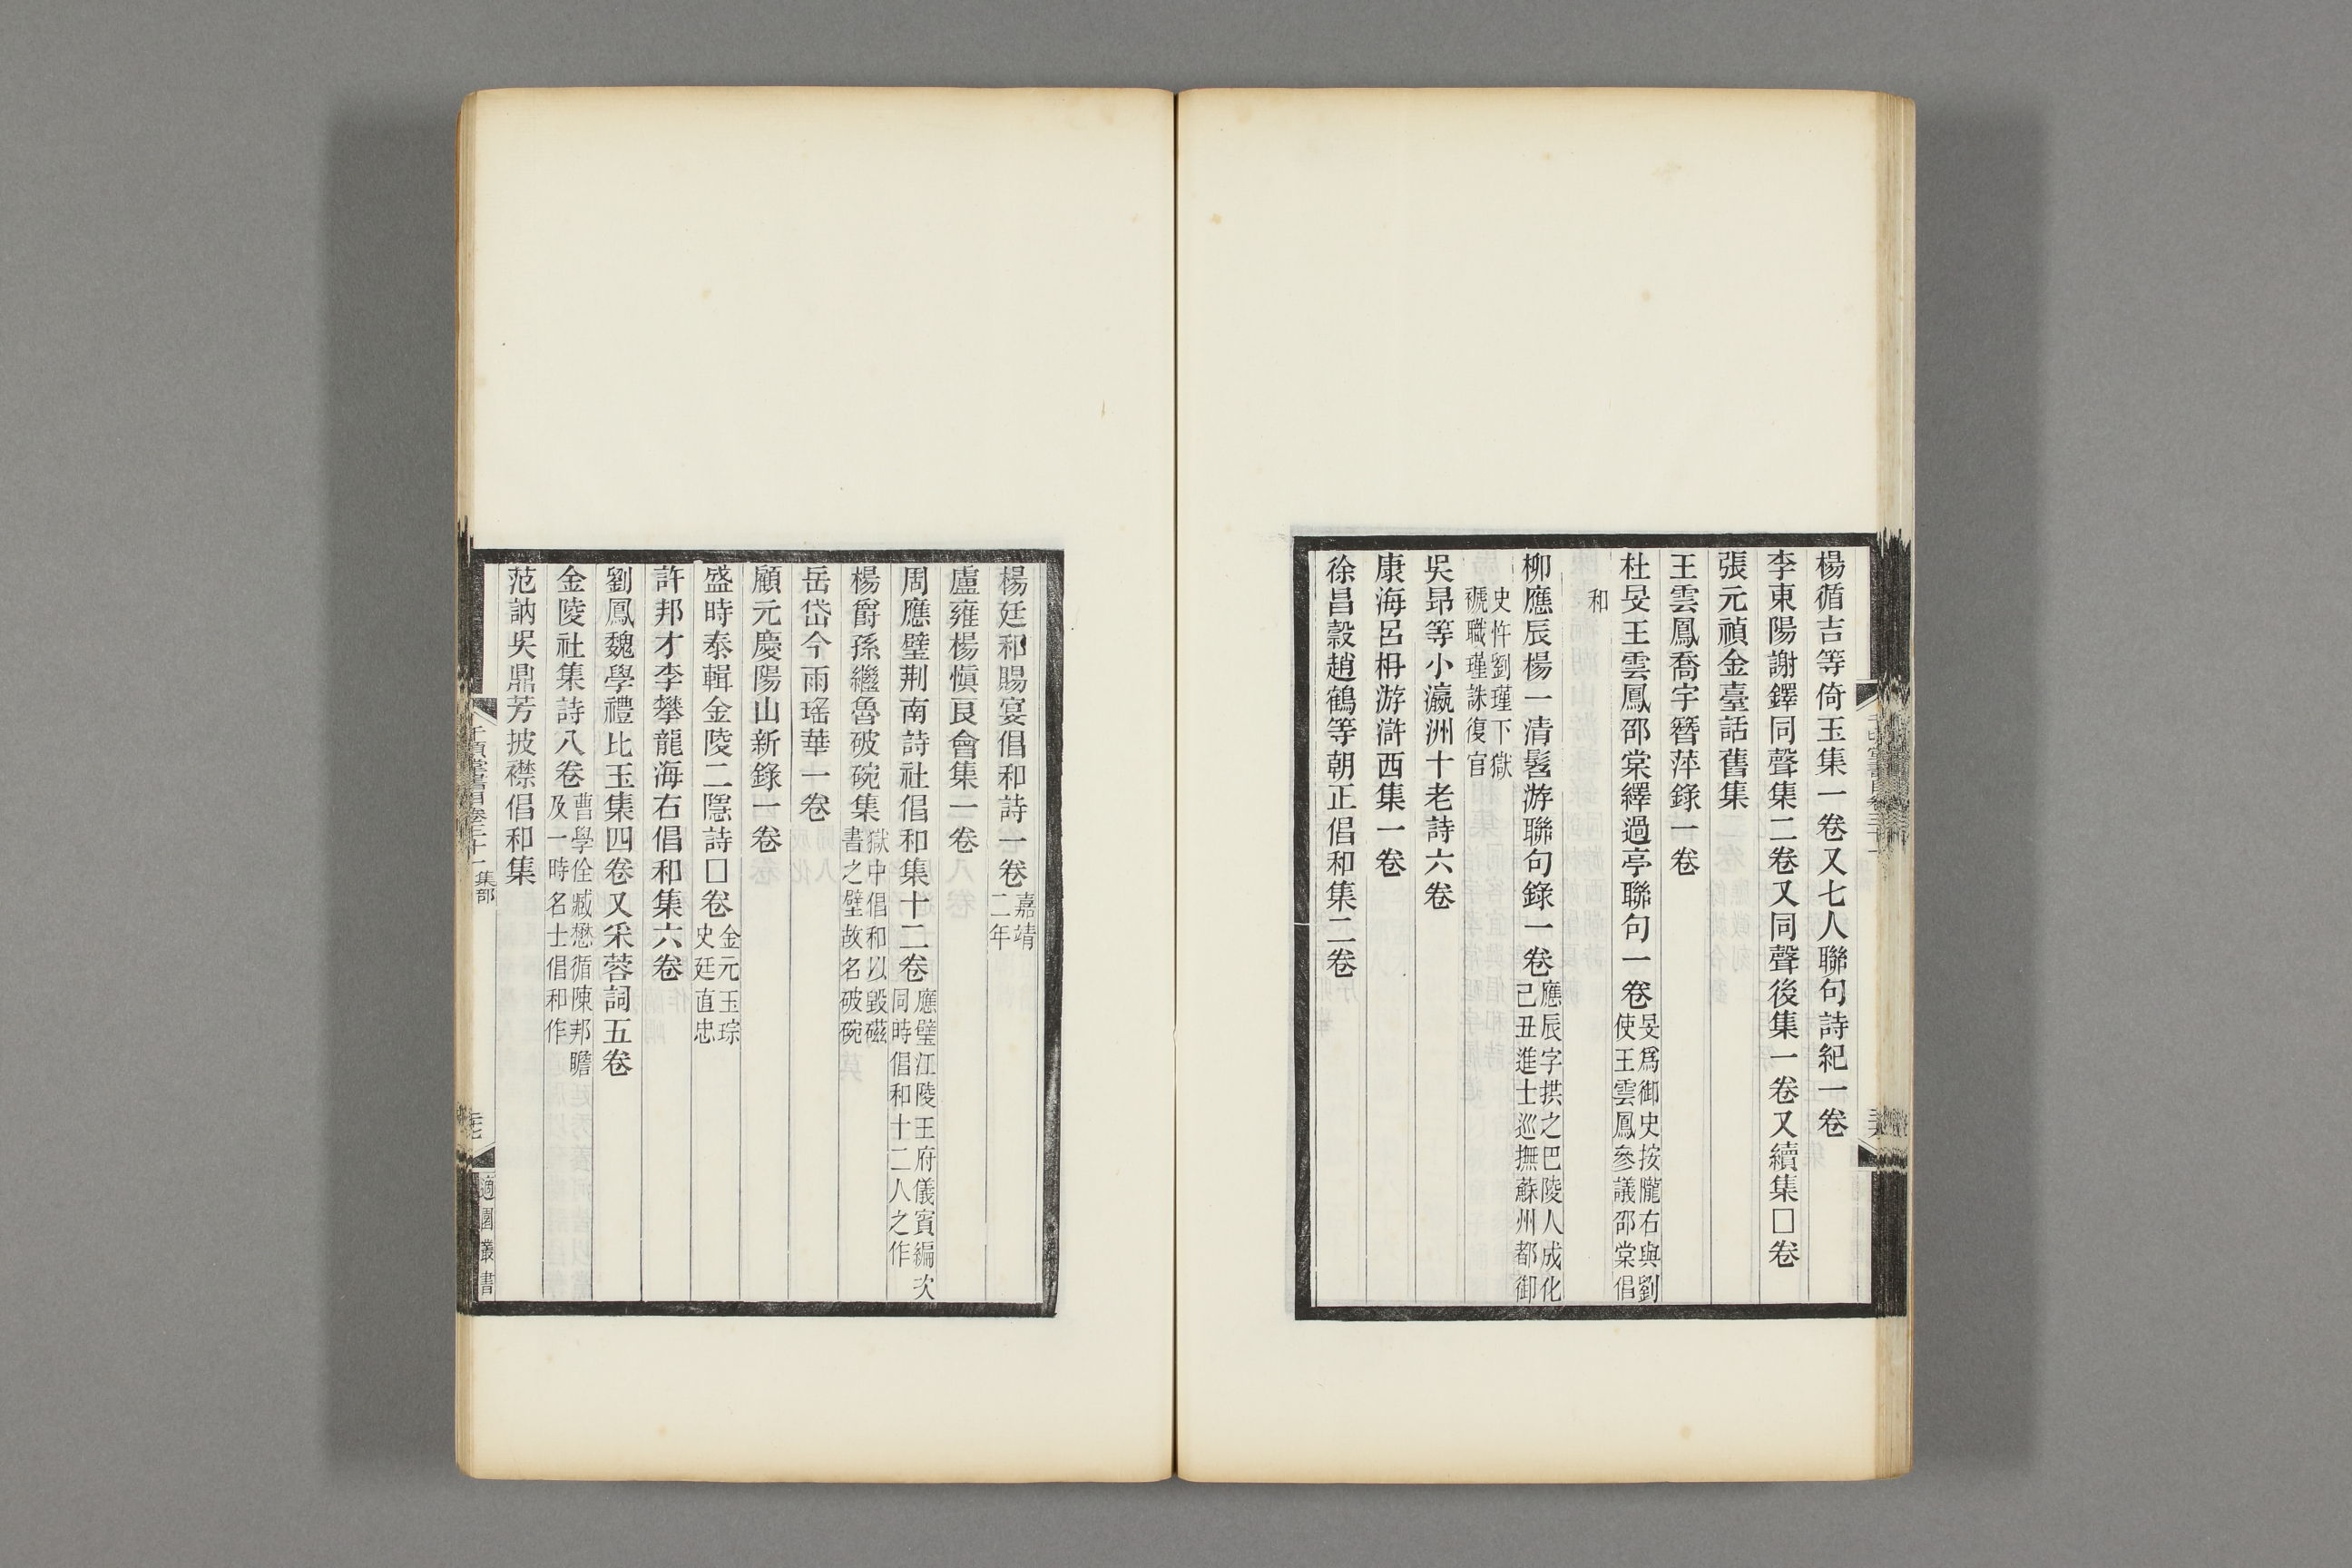 楊循吉等倚玉集一卷又七人聯句詩紀一卷
李東陽謝鐸同聲集二卷又同聲後集一卷又續集□卷
張元禎金臺話舊集
王雲鳳喬宇簪萍錄一卷
杜旻王雲鳳邵棠繹過亭聯句一卷
旻爲御史按隴右與劉
使王雲鳳參議邵棠倡
和
柳應辰楊一清髫游聯句錄一卷
應辰字拱之巴陵人成化
己丑進士巡撫蘇州都御
史忤劉瑾下獄
褫職瑾誅復官
吳昂等小瀛洲十老詩六卷
康海呂枏游滸西集一卷
徐昌穀趙鶴等朝正倡和集二卷
楊廷和賜宴倡和詩一卷
嘉靖
二年
盧雍楊愼艮會集一卷
周應璧荆南詩社倡和集十二卷
應璧江陵王府儀賓編次
同時倡和十二人之作
楊爵孫繼魯破碗集
獄中倡和以毀磁
書之壁故名破碗
岳岱今雨瑤華一卷
顧元慶陽山新錄一卷
盛時泰輯金陵二隱詩□卷
金元玉琮
史廷直忠
許邦才李攀龍海右倡和集六卷
劉鳳魏學禮比玉集四卷又采蓉詞五卷
金陵社集詩八卷
曹學佺臧懋循陳邦瞻
及一時名士倡和作
范訥吳鼎芳披襟倡和集
千頃堂書目卷三十一 集部
三七
適園叢書